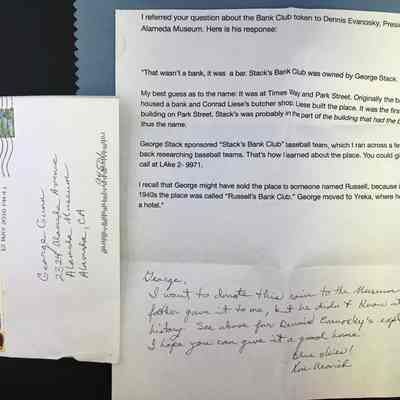 I referred your question about the Bank Club token to Dennis Evanosky, Presi
Alameda Museum. Here is his response:
"That wasn't a bank, it was a bar. Stack's Bank Club was owned by George Stack.
My best guess as to the name: It was at Times Way and Park Street. Originally the b
housed a bank and Conrad Liese's butcher shop. Liese built the place. It was the first
building on Park Street, Stack's was probably in the part of the building that had the b
thus the name.
George Stack sponsored "Stack's Bank Club" baseball team, which I ran across a few
back researching baseball teams. That's how I learned about the place. You could giv
call at LAke 2- 9971.
I recall that George might have sold the place to someone named Russell, because i
1940s the place was called "Russell's Bank Club." George moved to Yreka, where he
a hotel."
George,
I want to donate this coin to the Museum
father gave it to me, but he didn't know it
history. See above for Dennis Evanosky's expl
I hope you can give it a good home.
Blue skies!
George Gunn
2324 Alameda Avenue
Alameda Museum
Alameda, CA
94501